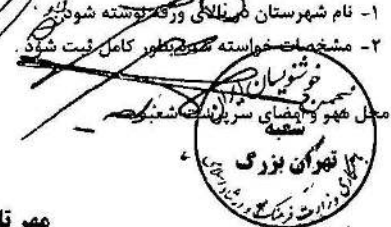 ۱- نام شهرستان در بالای ورقه نوشته شود.
۲- مشخصات خواسته شده بطور کامل ثبت شود.
محل مهر و امضای سرپرست شعبه
انجمن خوشنویسان
شعبه
تهران بزرگ
وزارت فرهنگ و ارشاد اسلامی
مهر